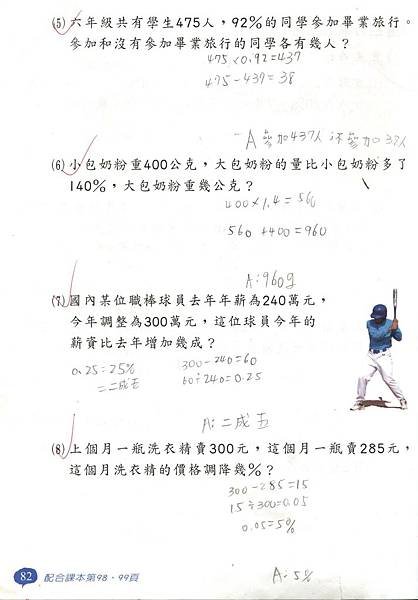 (5) 六年級共有學生475人，92%的同學參加畢業旅行。
參加和沒有參加畢業旅行的同學各有幾人？
475×0.92=437
475-437=38
A 參加437人 不參加38人
(6) 小包奶粉重400公克，大包奶粉的量比小包奶粉多了
140%，大包奶粉重幾公克？
400×1.4=560
560+400=960
A:960g
(7) 國內某位職棒球員去年年薪為240萬元，
今年調整為300萬元，這位球員今年的
薪資比去年增加幾成？
0.25=25%
=二成五
300-240=60
60÷240=0.25
A:二成五
(8) 上個月一瓶洗衣精賣300元，這個月一瓶賣285元，
這個月洗衣精的價格調降幾%？
300-285=15
15÷300=0.05
0.05=5%
A:5%
82 配合課本第98、99頁